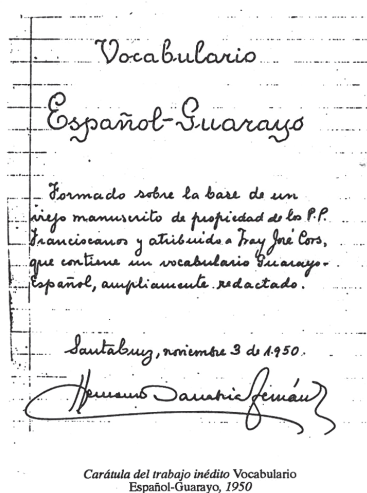 Vocabulario
Español-Guarayo
Formado sobre la base de un
viejo manuscrito de propiedad de los P.P.
Franciscanos y atribuido a Fray José Cors,
que contiene un vocabulario Guarayo-
Español, ampliamente redactado.
Santa Cruz, noviembre 3 de 1.950.
Hernando Sanabria Fernández
Carátula del trabajo inédito Vocabulario
Español-Guarayo, 1950